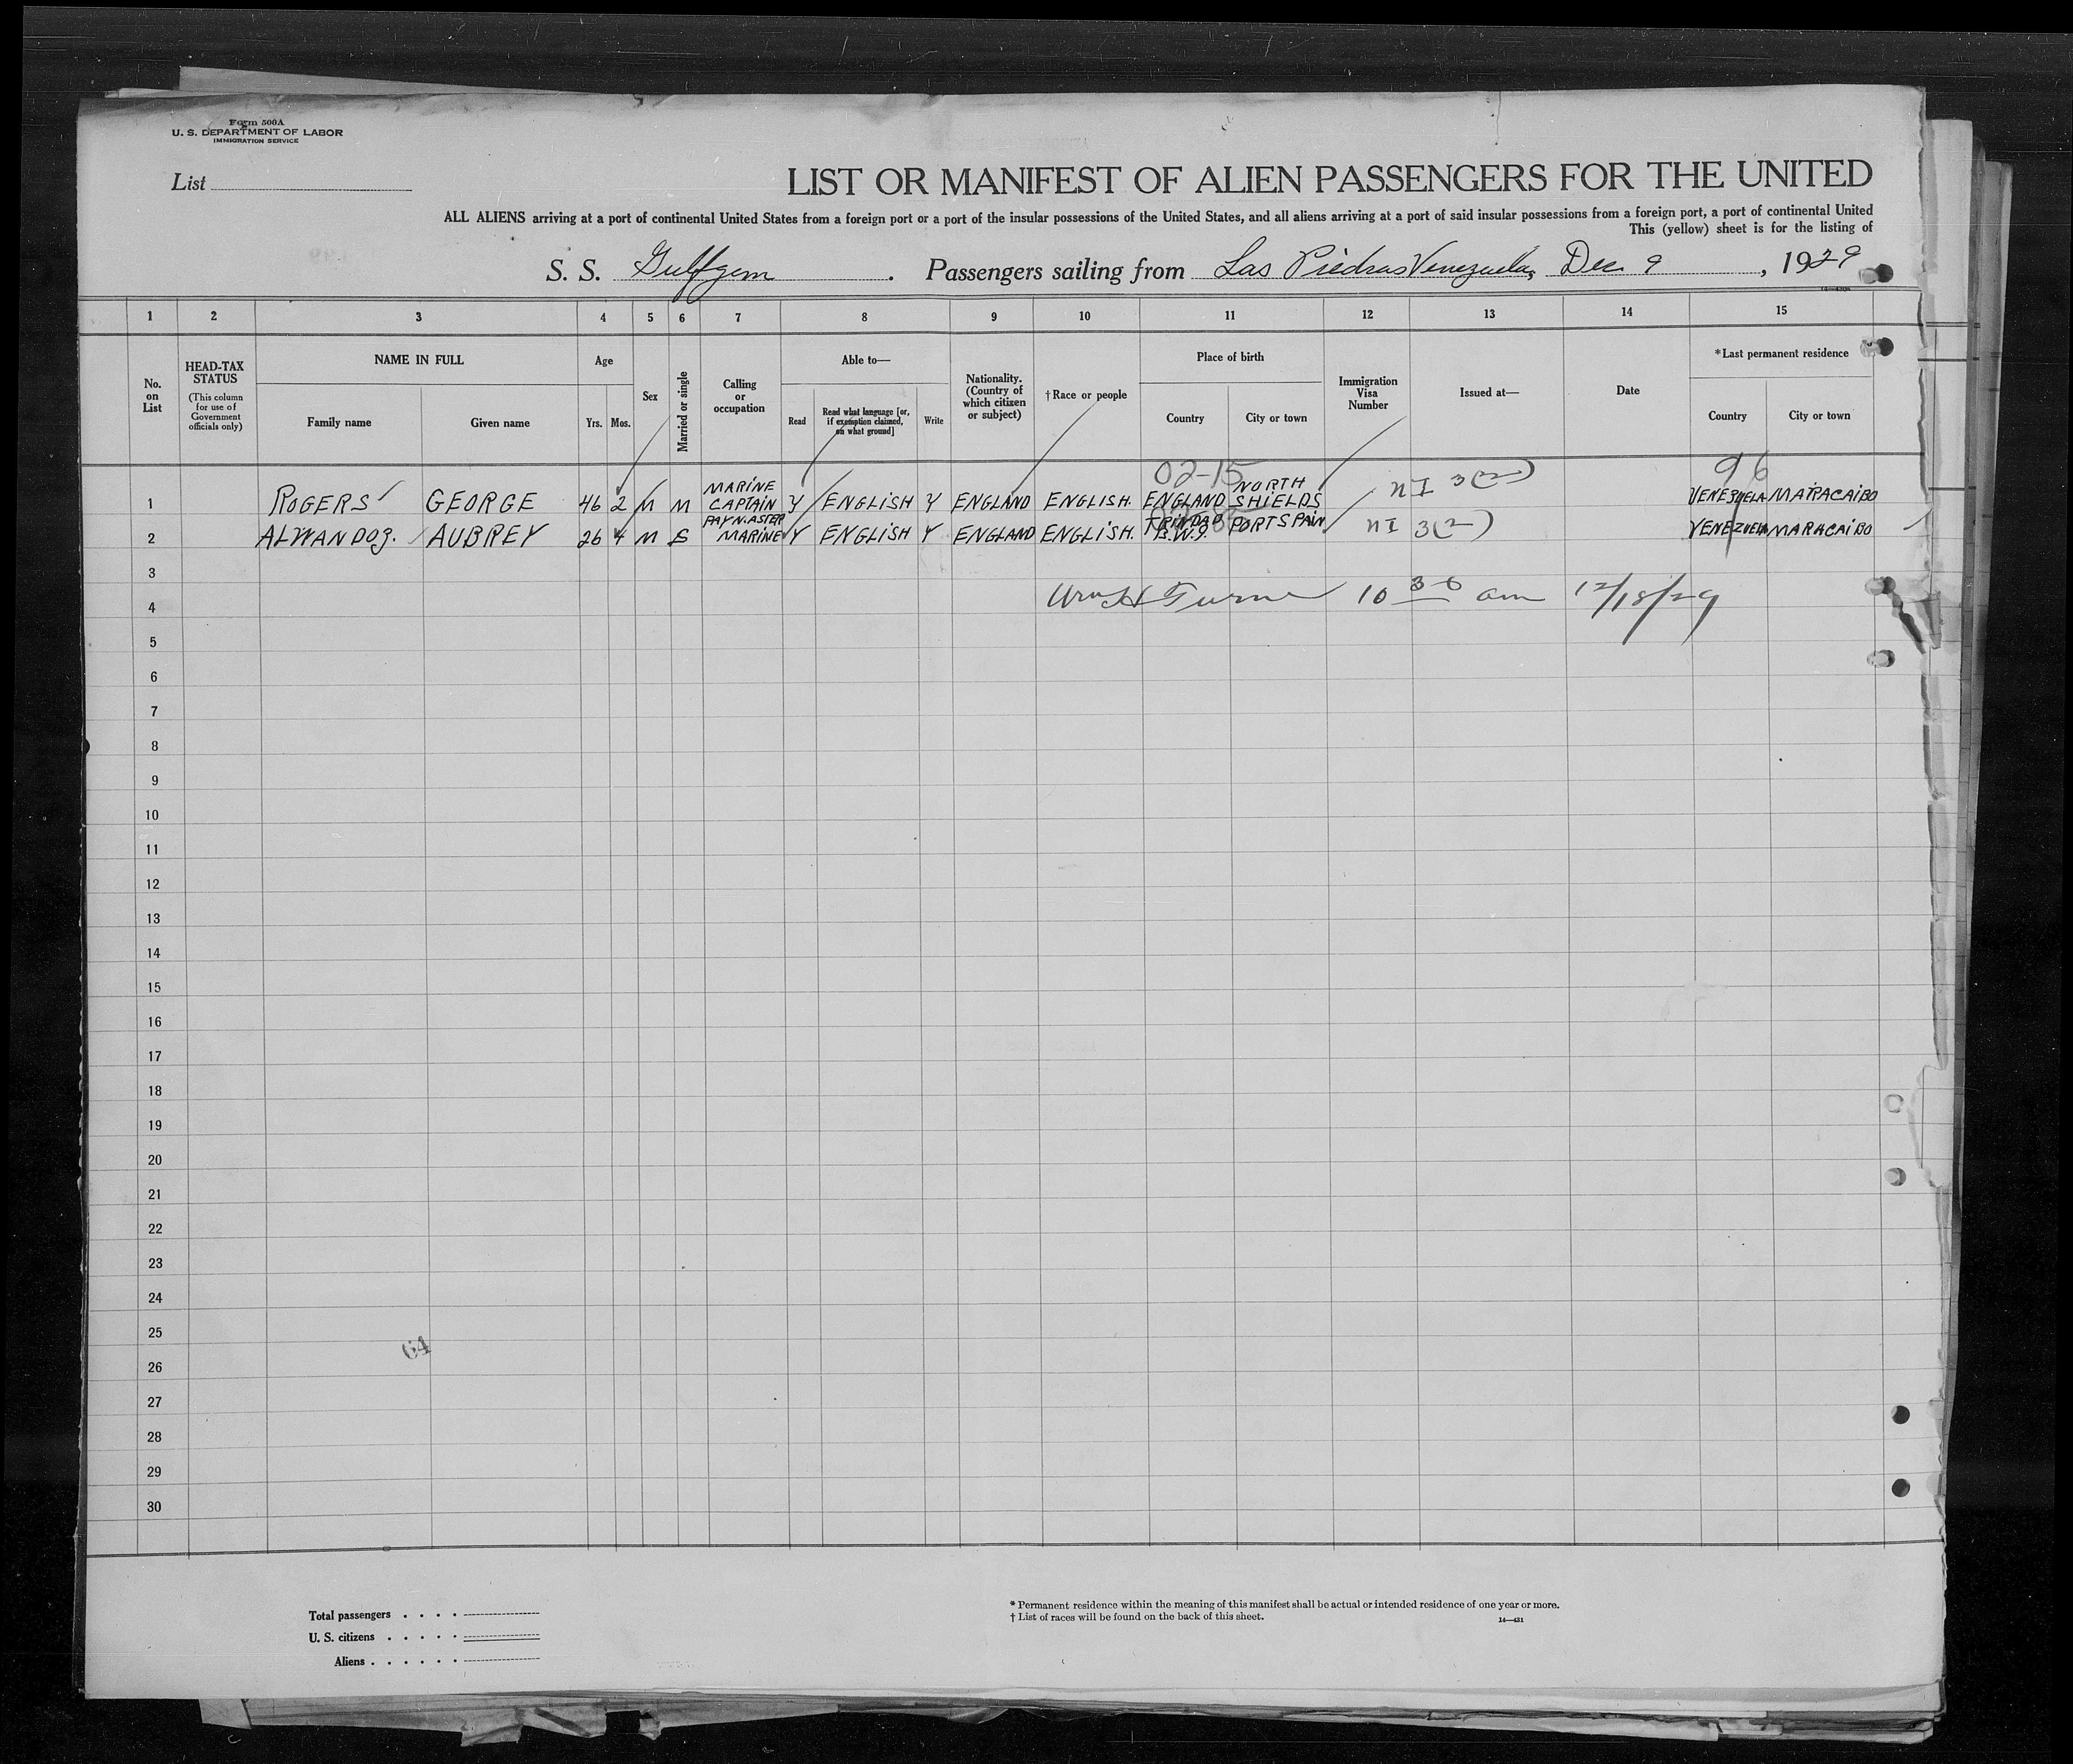 Form 500A
U. S. DEPARTMENT OF LABOR
IMMIGRATION SERVICE
List
LIST OR MANIFEST OF ALIEN PASSENGERS FOR THE UNITED
ALL ALIENS arriving at a port of continental United States from a foreign port or a port of the insular possessions of the United States, and all aliens arriving at a port of said insular possessions from a foreign port, a port of continental United
This (yellow) sheet is for the listing of
S. S. Gulfgem . Passengers sailing from Las Piedras Venezuela, Dec. 9, 1929
1 2 3 4 5 6 7 8 9 10 11 12 13 14 15
No. on List
HEAD-TAX STATUS (This column for use of Government officials only)
NAME IN FULL
Family name Given name
Age
Yrs. Mos.
Sex
Married or single
Calling or occupation
Able to—
Read
Read what language [or, if exemption claimed, on what ground]
Write
Nationality. (Country of which citizen or subject)
†Race or people
Place of birth
Country City or town
Immigration Visa Number
Issued at—
Date
*Last permanent residence
Country City or town
02-15 96
1 ROGERS GEORGE 46 2 M M MARINE CAPTAIN Y ENGLISH Y ENGLAND ENGLISH. ENGLAND NORTH SHIELDS NI 3(2) VENEZUELA MARACAIBO
2 ALWANDOZ. AUBREY 26 4 M S PAYMASTER MARINE Y ENGLISH Y ENGLAND ENGLISH. TRINDAD B.W.I. PORTSPAIN NI 3(2) VENEZUELA MARACAIBO
3
4 Wm H Turner 10 30 am 12/18/29
5
6
7
8
9
10
11
12
13
14
15
16
17
18
19
20
21
22
23
24
25
64
26
27
28
29
30
Total passengers
U. S. citizens
Aliens
* Permanent residence within the meaning of this manifest shall be actual or intended residence of one year or more.
† List of races will be found on the back of this sheet.
14—431